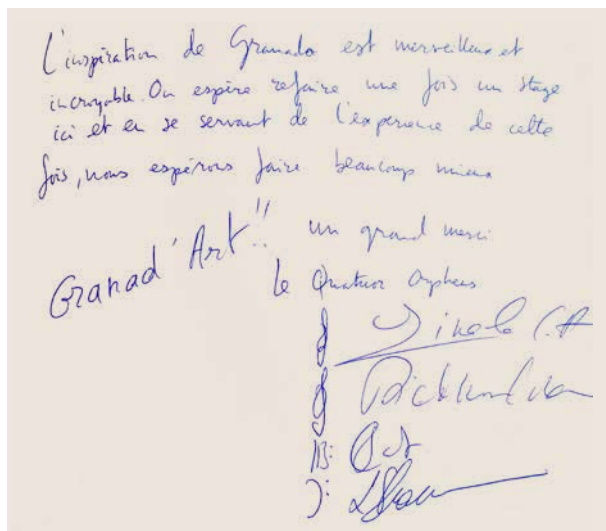 L'inspiration de Granada est merveilleux et
incroyable. On espère refaire une fois un stage
ici et en se servant de l'experience de cette
fois, nous espérons faire beaucoup mieux
Granad'Art!!
un grand merci
Le Quatuor Orpheus